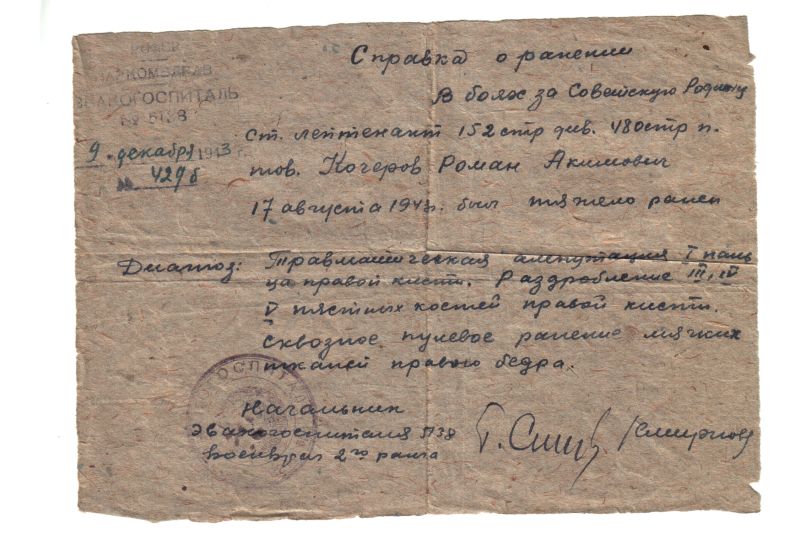 РСФСР
НАРКОМЗДРАВ
ЭВАКОГОСПИТАЛЬ
№ 5138
9 декабря 1943 г.
№ 429б
Справка о ранении
В боях за Советскую Родину
ст. лейтенант 152 стр див. 480 стр п.
тов. Кочеров Роман Акимович
17 августа 1943г. был тяжело ранен
Диагноз: Травматическая ампутация I паль
ца правой кисти. Раздробление III, IV
V пястных костей правой кисти.
Сквозное пулевое ранение мягких
тканей правого бедра.
Начальник
эвакогоспиталя 5138
Военврач 2го ранга
/Смирнов/